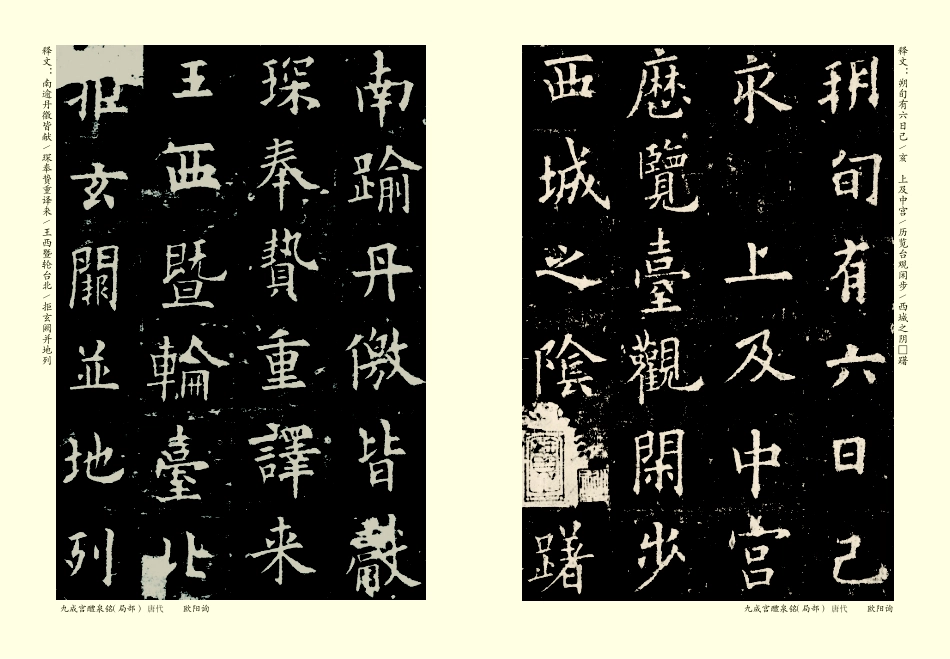 南踰丹儌皆獻
琛奉贄重譯来
王西暨輪臺北
拒玄闕並地列
释文：南逾丹徼皆献/琛奉贽重译来/王西暨轮台北/拒玄阙并地列
九成宫醴泉铭(局部) 唐代 欧阳询
释文：朔旬有六日己/亥 上及中宫/历览台观闲步/西城之阴□躇
朔旬有六日己
亥 上及中宮
歷覽臺觀閑步
西城之陰 躇
九成宫醴泉铭(局部) 唐代 欧阳询